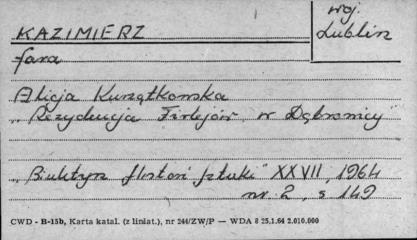 KAZIMIERZ
woj.
Lublin
fara
Alicja Kurzątkowska
"Rezydencja Firlejów w Dąbrowicy"
"Biuletyn Historii Sztuki" XXVII, 1964
nr. 2, s. 149
CWD - B-15b, Karta katal. (z liniat.), nr 244/ZW/P — WDA 8 25.1.64 2.010.000